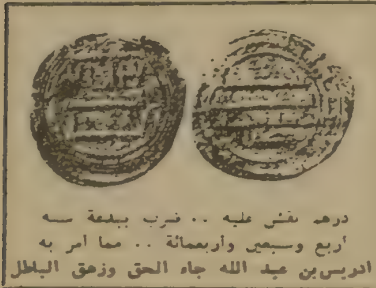 درهم نقش عليه .. ضرب ببدعة سنه
أربع وسبعين وأربعمائة .. مما أمر به
ادريس بن عبد الله جاء الحق وزهق الباطل